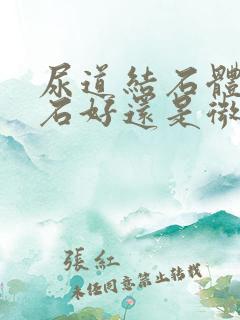 尿道結石體
石好還是微
張紅
未经同意禁止转载